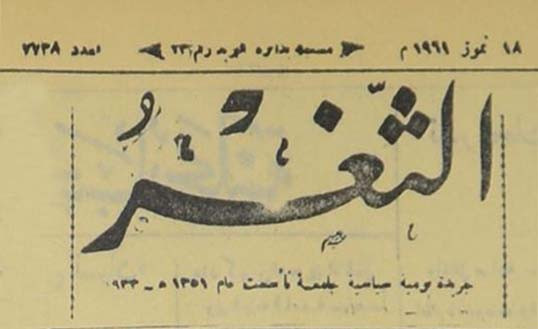 ١٨ تموز ١٩٦١ م مسجلة بدائرة البريد رقم ٢٣ العدد ٧٧٣٨
الثغر
جريدة يومية سياسية جامعة تأسست عام ١٣٥١ هـ - ٩٣٣